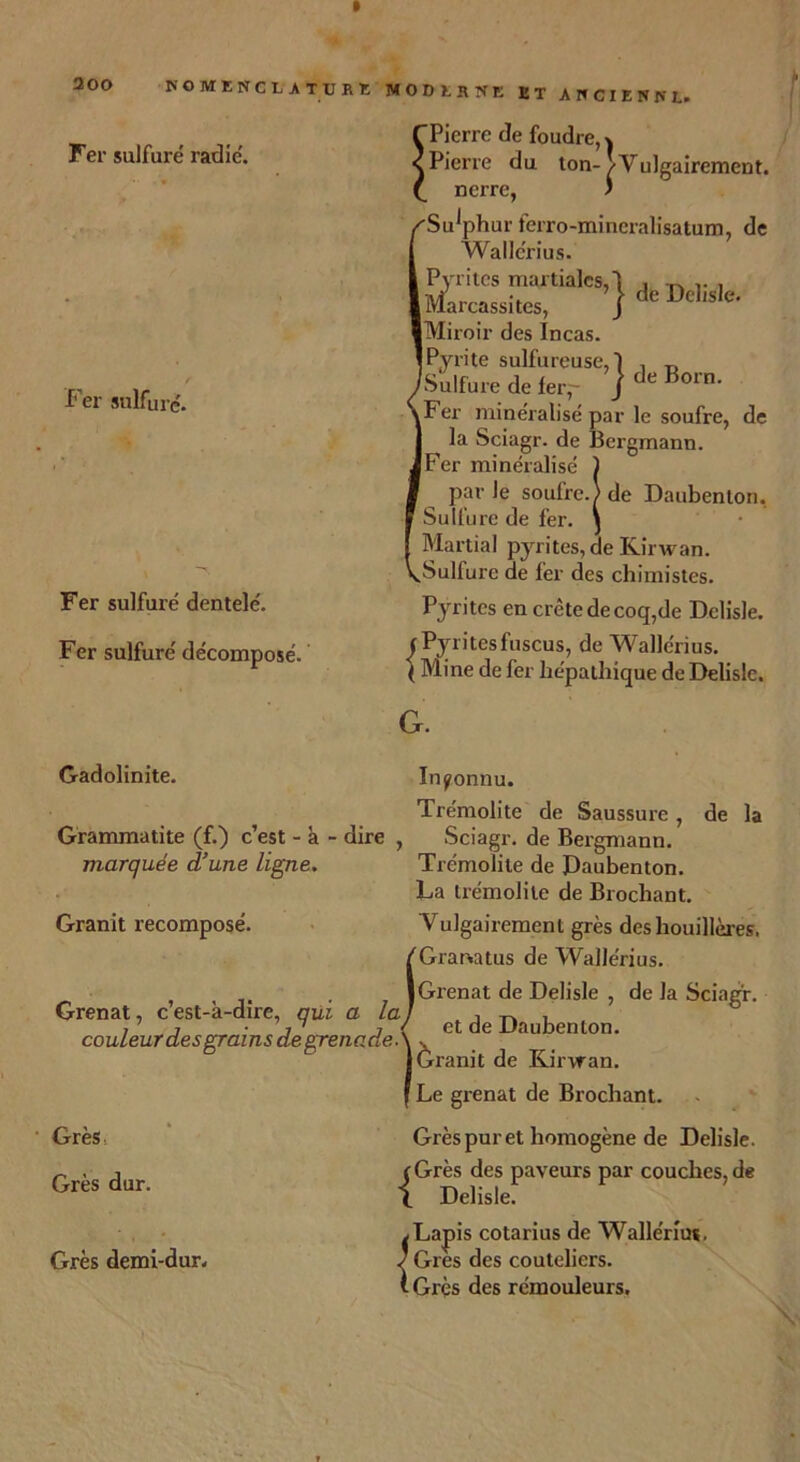 200 NOMENCLATURE MODERNE ET ANCIENNE.
Fer sulfuré radié.
Pierre de foudre,
Pierre du ton-
nerre,
Vulgairement.
Fer sulfuré.
Sulphur ferro-mineralisatum, de
Wallérius.
Pyrites martiales,
Marcassites,
de Delisle.
Miroir des Incas.
Pyrite sulfureuse,
Sulfure de fer,
de Born.
Fer minéralisé par le soufre, de
la Sciagr. de Bergmann.
Fer minéralisé
par le soufre.
Sulfure de fer.
de Daubenton.
Martial pyrites, de Kirwan.
Sulfure de fer des chimistes.
Fer sulfuré dentelé.
Pyrites en crête de coq, de Delisle.
Fer sulfuré décomposé.
Pyrites fuscus, de Wallérius.
Mine de fer hépathique de Delisle.
G.
Gadolinite.
Inconnu.
Grammatite (f.) c'est - à - dire ,
marquée d'une ligne.
Trémolite de Saussure , de la
Sciagr. de Bergmann.
Trémolite de Daubenton.
La trémolite de Brochant.
Granit recomposé.
Vulgairement grès des houillères.
Grenat, c'est-à-dire, qui a la
couleur des grains de grenade.
Granatus de Wallérius.
Grenat de Delisle , de la Sciagr.
et de Daubenton.
Granit de Kirwan.
Le grenat de Brochant.
Grès.
Grès pur et homogène de Delisle.
Grès dur.
Grès des paveurs par couches, de
Delisle.
Grès demi-dur.
Lapis cotarius de Wallérius.
Grès des couteliers.
Grès des rémouleurs.